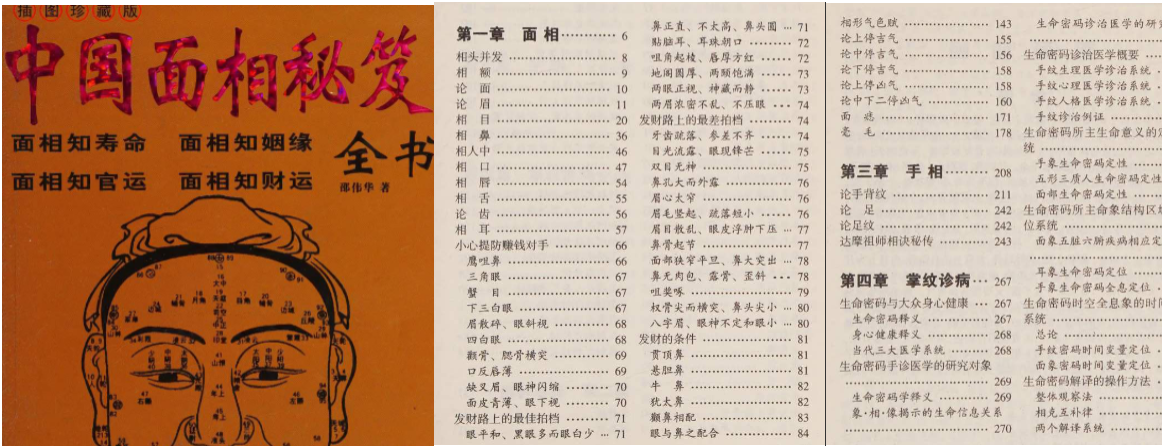 插图珍藏版
中国面相秘笈
面相知寿命 面相知姻缘
全书
面相知官运 面相知财运
邵伟华 著
第一章 面相 6
相头并发 8
相 额 9
论 面 10
论 眉 11
相 目 20
相 鼻 36
相人中 46
相 口 47
相 唇 54
相 舌 55
论 齿 56
相 耳 57
小心提防赚钱对手 66
鹰咀鼻 66
三角眼 67
蟹 目 67
下三白眼 67
眉散碎、眼斜视 68
四白眼 68
颧骨、腮骨横突 69
口反唇薄 69
缺叉眉、眼神闪缩 70
面皮青薄、眼下视 70
发财路上的最佳拍档 71
眼平和、黑眼多而眼白少 71
鼻正直、不太高、鼻头圆 71
贴脑耳、耳珠朝口 72
咀角起棱、唇厚方红 72
地阁圆厚、两颐饱满 73
两眼正视、神藏而静 73
两眉浓密不乱、不压眼 74
发财路上的最差拍档 74
牙齿疏落、参差不齐 74
目光流露、眼现锋芒 75
双目无神 75
鼻孔大而外露 76
眉心太窄 76
眉毛竖起、疏落短小 76
眉目散乱、眼皮浮肿下压 77
鼻骨起节 77
面部狭窄平旦、鼻大突出 78
鼻无肉包、露骨、歪斜 78
咀奖啄 79
权骨尖而横突、鼻头尖小 80
八字眉、眼神不定和眼小 80
发财的条件 81
贯顶鼻 81
悬胆鼻 81
牛 鼻 82
犹太鼻 82
颧鼻相配 83
眼与鼻之配合 84
相形气色赋 143
论上停吉气 155
论中停吉气 156
论下停吉气 158
论上停凶气 158
论中下二停凶气 160
面 痣 171
毫 毛 178
第三章 手相 208
论手背纹 211
论 足 242
论足纹 242
达摩祖师相诀秘传 243
第四章 掌纹诊病 267
生命密码与大众身心健康 267
生命密码释义 267
身心健康释义 268
当代三大医学系统 268
生命密码手诊医学的研究对象
269
生命密码学释义 269
象·相·像揭示的生命信息关系
270
生命密码诊治医学的研
生命密码诊治医学概要
手纹生理医学诊治系统
手纹心理医学诊治系统
手纹人格医学诊治系统
手纹诊治例证
生命密码所主生命意义的定
统
手象生命密码定性
五形三质人生命密码定性
面部生命密码定性
生命密码所主命象结构区域
位系统
面象五脏六腑疾病相应定
耳象生命密码定位
手象生命密码全息定位
生命密码时空全息象的时间
系统
总论
手纹密码时间变量定位
面象密码时间变量定位
生命密码解译的操作方法
整体观察法
相克互补律
两个解译系统